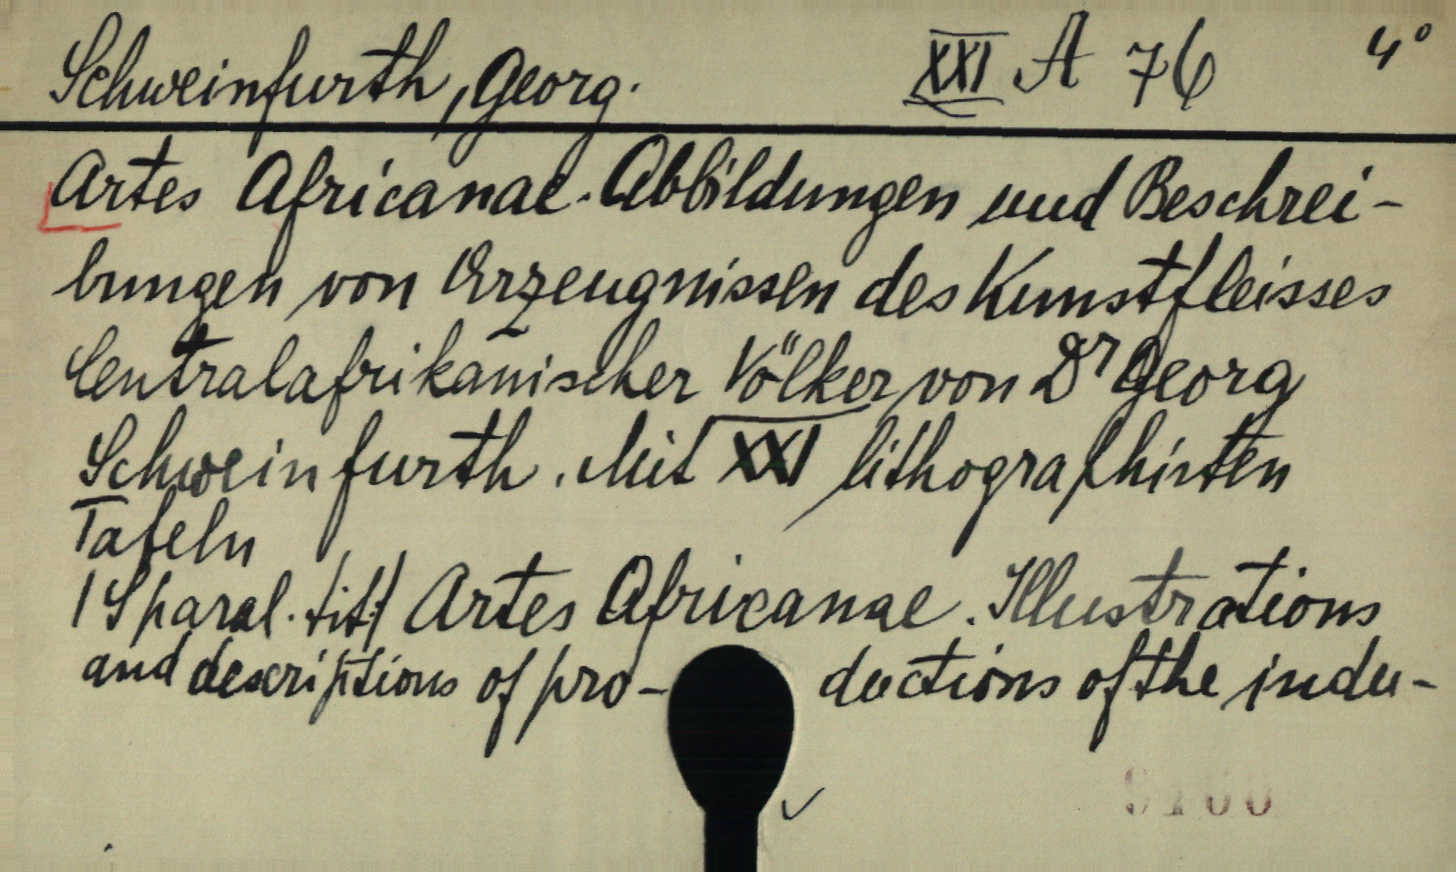 Schweinfurth, Georg. XXI A 76 4°
Artes Africanae. Abbildungen und Beschrei-
bungen von Erzeugnissen des Kunstfleisses
Centralafrikanischer Völker von Dr Georg
Schweinfurth. Mit XXI lithographirten
Tafeln
/Sparal. tit:/ Artes Africanae. Illustrations
and descriptions of pro- ductions of the indu-